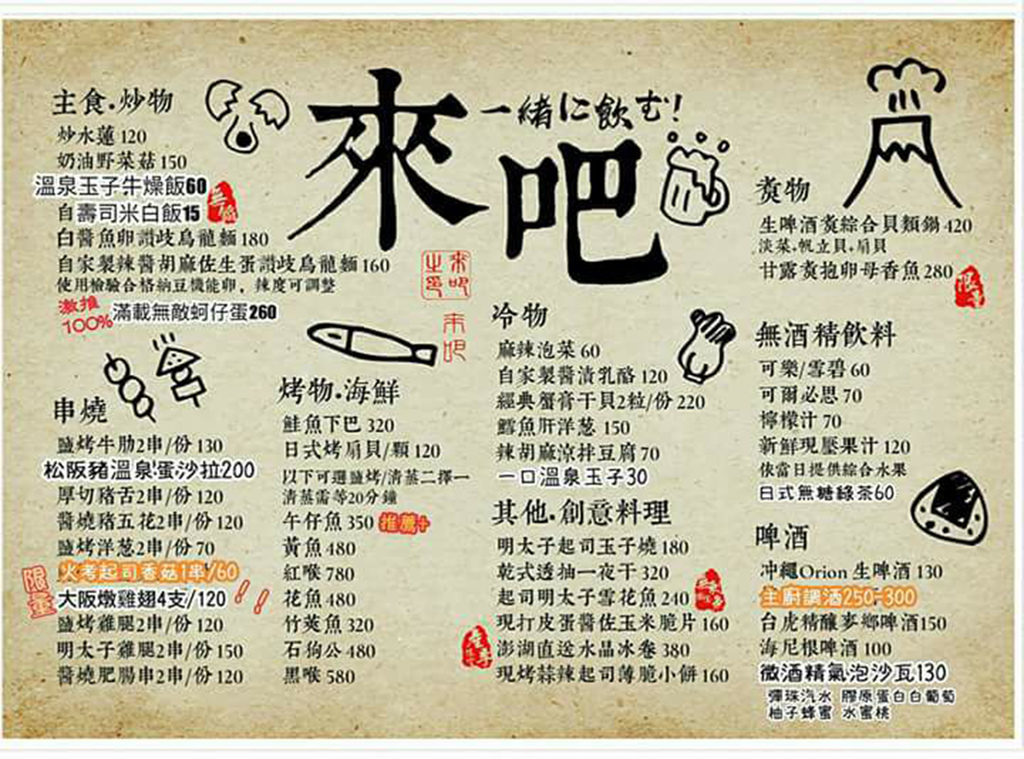 來吧
一緒に飲む!
主食.炒物
炒水蓮 120
奶油野菜菇 150
溫泉玉子牛燥飯60
自壽司米白飯15
白醬魚卵讚歧烏龍麵 180
自家製辣醬胡麻佐生蛋讚歧烏龍麵 160
使用檢驗合格納豆機能卵，辣度可調整
激推
100%
滿載無敵蚵仔蛋260
串燒
鹽烤牛肋2串/份 130
松阪豬溫泉蛋沙拉200
厚切豬舌2串/份 120
醬燒豬五花2串/份 120
鹽烤洋葱2串/份 70
火考起司香菇1串/60
限量
大阪燉雞翅4支/120 !!
鹽烤雞腿2串/份 120
明太子雞腿2串/份 150
醬燒肥腸串2串/份 120
烤物.海鮮
鮭魚下巴 320
日式烤扇貝/顆 120
以下可選鹽烤/清蒸二擇一
清蒸需等20分鐘
午仔魚 350 推薦+
黃魚 480
紅喉 780
花魚 480
竹莢魚 320
石狗公 480
黑喉 580
來吧
冷物
麻辣泡菜 60
自家製醬漬乳酪 120
經典蟹膏干貝2粒/份 220
鱈魚肝洋葱 150
辣胡麻涼拌豆腐 70
一口溫泉玉子30
其他.創意料理
明太子起司玉子燒 180
乾式透抽一夜干 320
起司明太子雪花魚 240
現打皮蛋醬佐玉米脆片 160
澎湖直送水晶冰卷 380
現烤蒜辣起司薄脆小餅 160
煑物
生啤酒煑綜合貝類鍋 420
淡菜.帆立貝.扇貝
甘露煑抱卵母香魚 280
限量
無酒精飲料
可樂/雪碧 60
可爾必思 70
檸檬汁 70
新鮮現壓果汁 120
依當日提供綜合水果
日式無糖綠茶60
啤酒
沖繩Orion 生啤酒 130
主廚調酒250-300
台虎精釀麥鄉啤酒150
海尼根啤酒 100
微酒精氣泡沙瓦130
彈珠汽水 膠原蛋白白葡萄
柚子蜂蜜 水蜜桃